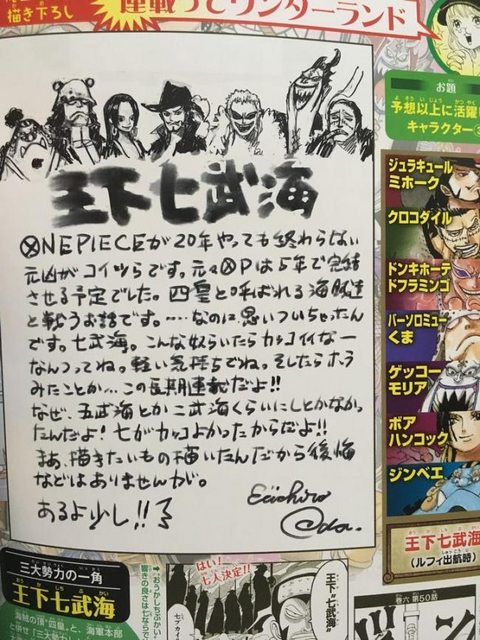 描き下ろし
連載ってワンダーランド
王下七武海
ⓍNEPIECEが20年やっても終わらない
元凶がコイツらです。元々ⓍPは5年で完結
させる予定でした。四皇と呼ばれる海賊達
と戦うお話です。……なのに思いついちゃったん
です。七武海。こんな奴らいたらカッコイイなー
なんつってね。軽い気持ちでね。そしたらホラ
みたことか…この長期連載だよ!!
なぜ、五武海とか二武海くらいにしとかなかっ
たんだよ!七がカッコよかったからだよ!!
まあ、描きたいもの描いたんだから後悔
などはありませんが。
あるよ少し!!
Eiichiro
Oda.
お題
予想以上に活躍
よそういじょう
かつやく
キャラクター
ジュラキュール
ミホーク
クロコダイル
ドンキホーテ
ドフラミンゴ
バーソロミュー
くま
ゲッコー
モリア
ボア
ハンコック
ジンベエ
王下七武海
(ルフィ出航時)
しゅっこうじ
三大勢力の一角
おうかしちぶかい
王下七武海
海賊の頂“四皇”と、海軍本部
と併せ「三大勢力
→“おうかしちぶかい”
響きの良さは七なら
はい!
七人決定!!
王下七武海
巻六 第50話